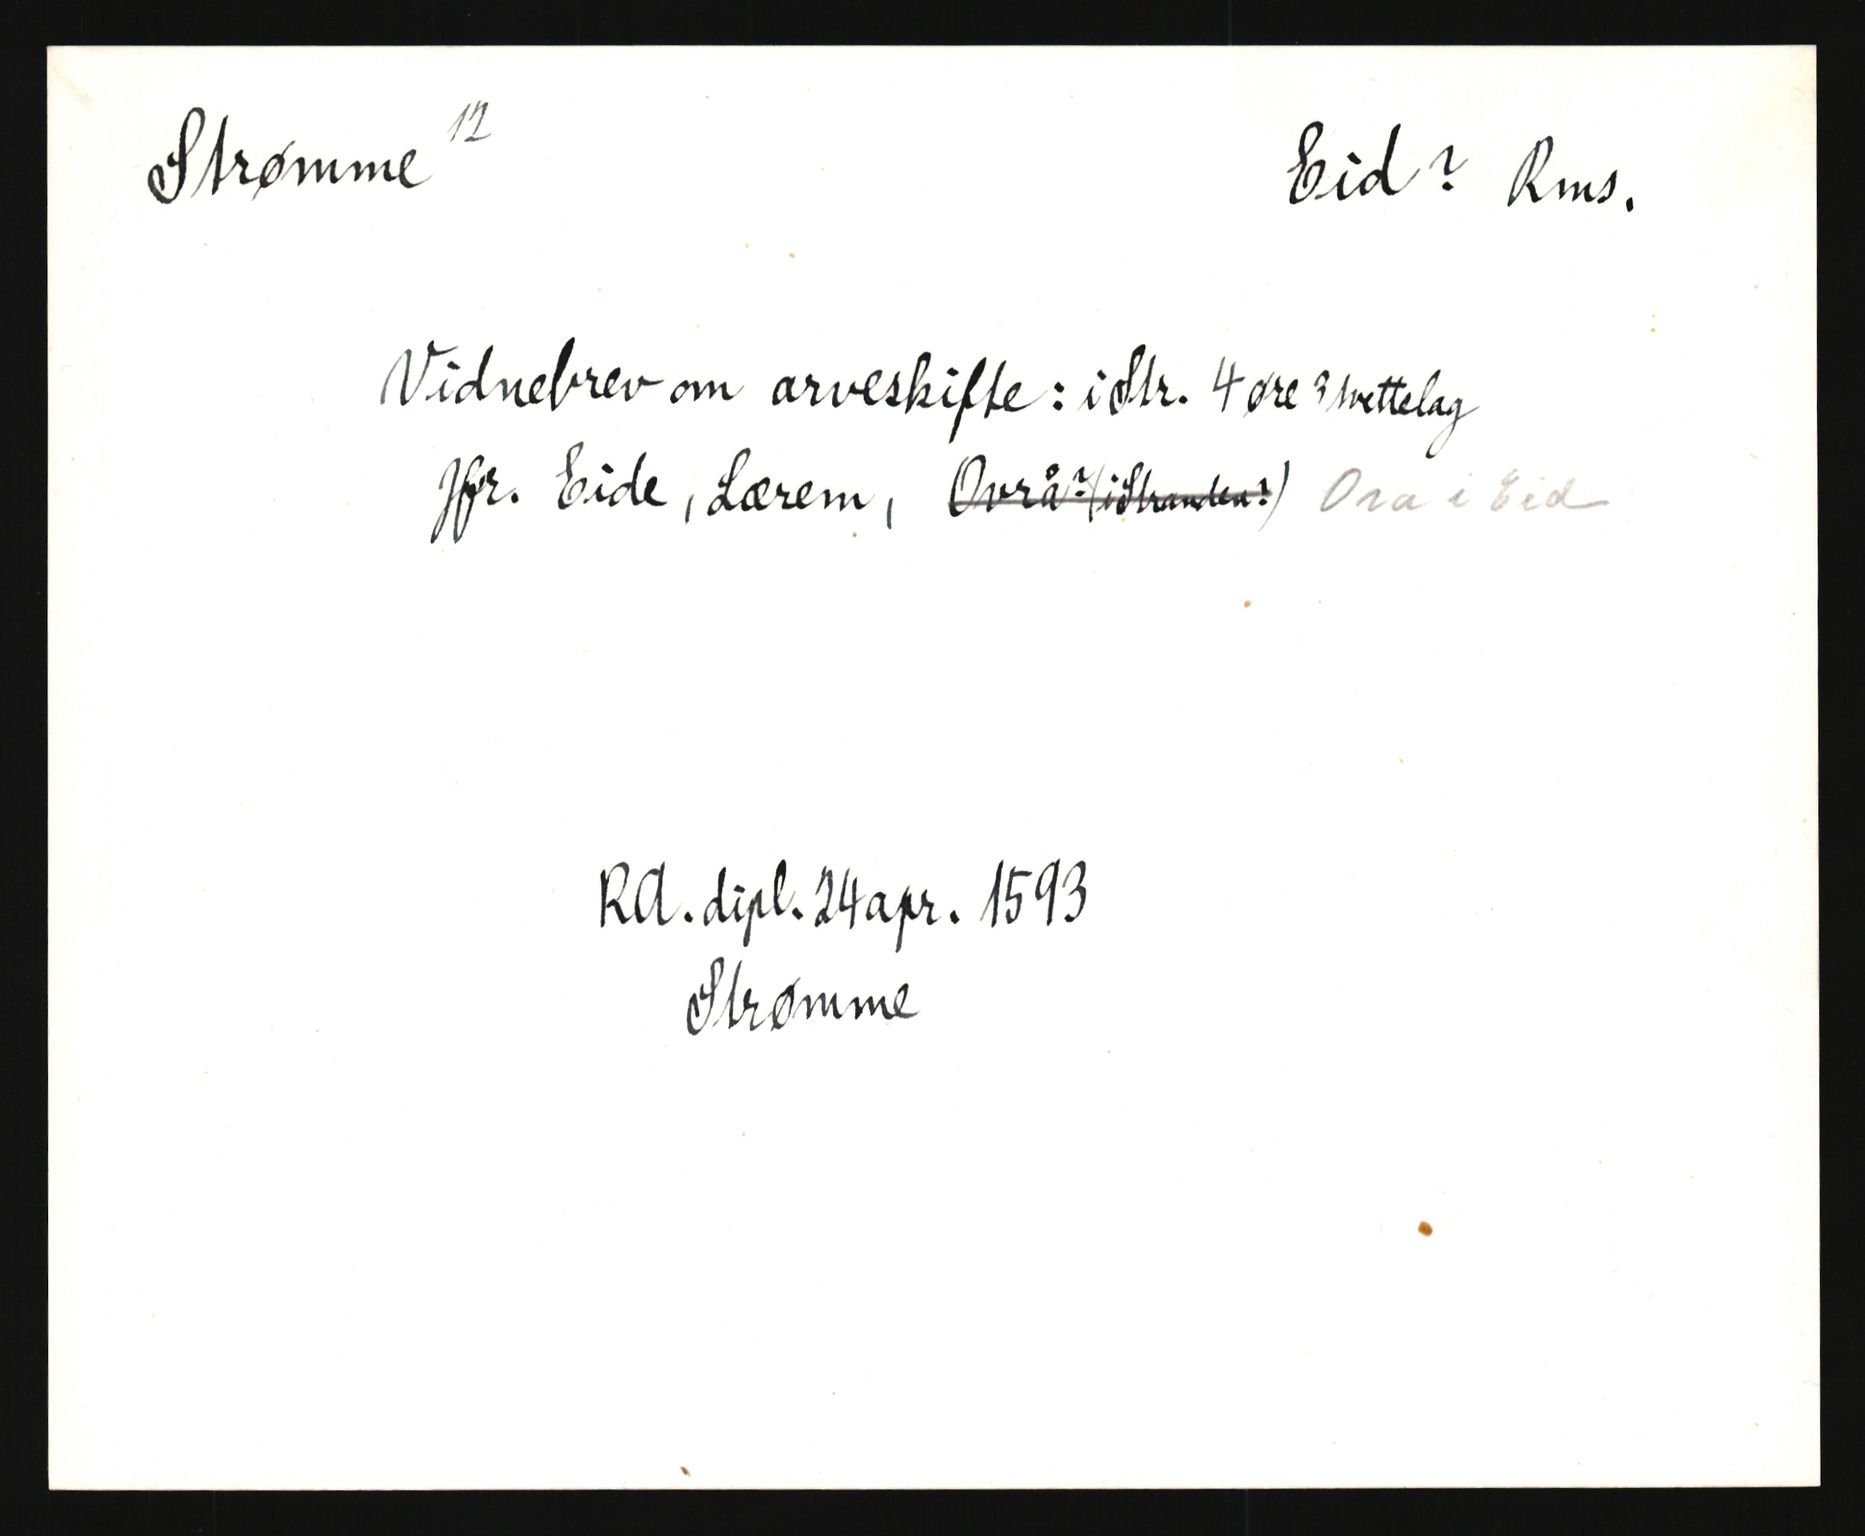 Strømme 12 Eid? Rms.
Vidnebrev om arveskifte: i Str. 4 øre 3 wettelag
Jfr. Eide, Lærem, Ovrå? (i Stranden?) Ora i Eid
RA. dipl. 24 apr. 1593
Strømme